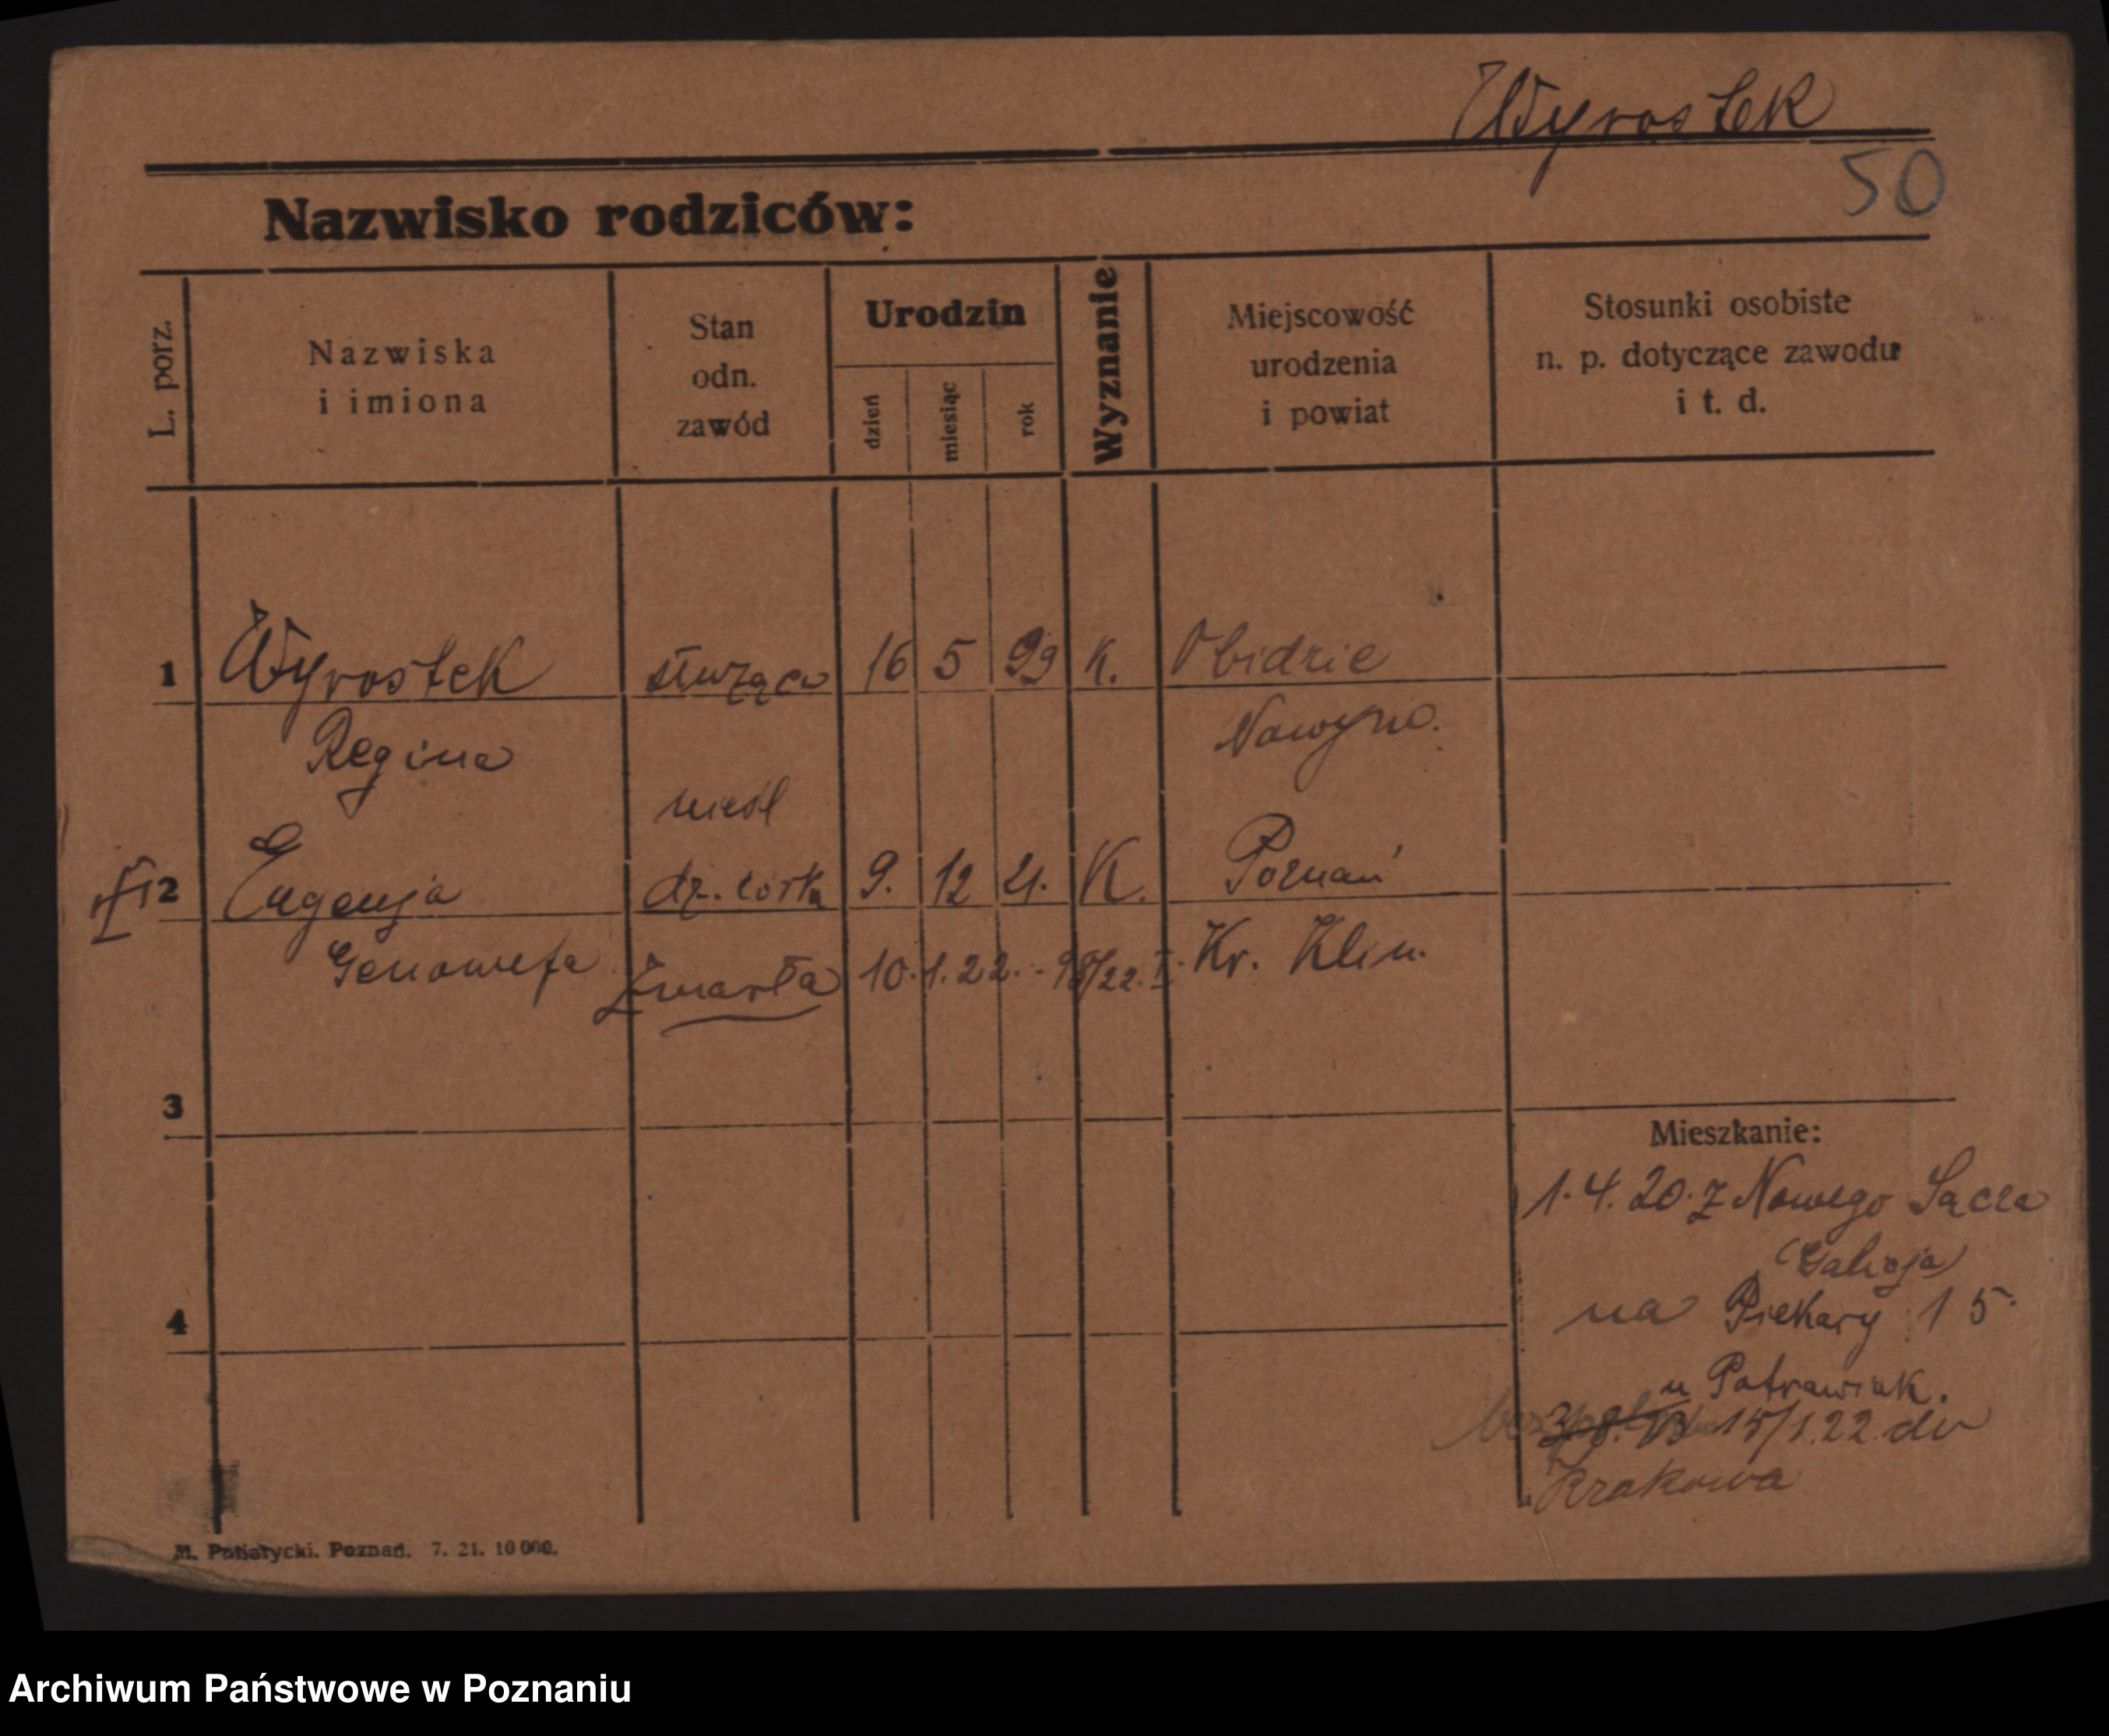 Wyrostek
50
Nazwisko rodziców:
L. porz.
Nazwiska
i imiona
Stan
odn.
zawód
Urodzin
dzień
miesiąc
rok
Wyznanie
Miejscowość
urodzenia
i powiat
Stosunki osobiste
n. p. dotyczące zawodu
i t. d.
1 Wyrostek służąca 16 5 99 K. Obidzie
Regina
nieśl
2 Eugenja dz. córka 9. 12 21. K. Poznań
Genowefa Zmarła 10.1.22. Kr. Klin.
3
Mieszkanie:
1.4.20. z Nowego Sącza
(Galicja)
4
na Piekary 15
u Patrawiak.
15/1.22 do
Krakowa
M. Pobiatycki. Poznań. 7. 21. 10 000.
Archiwum Państwowe w Poznaniu